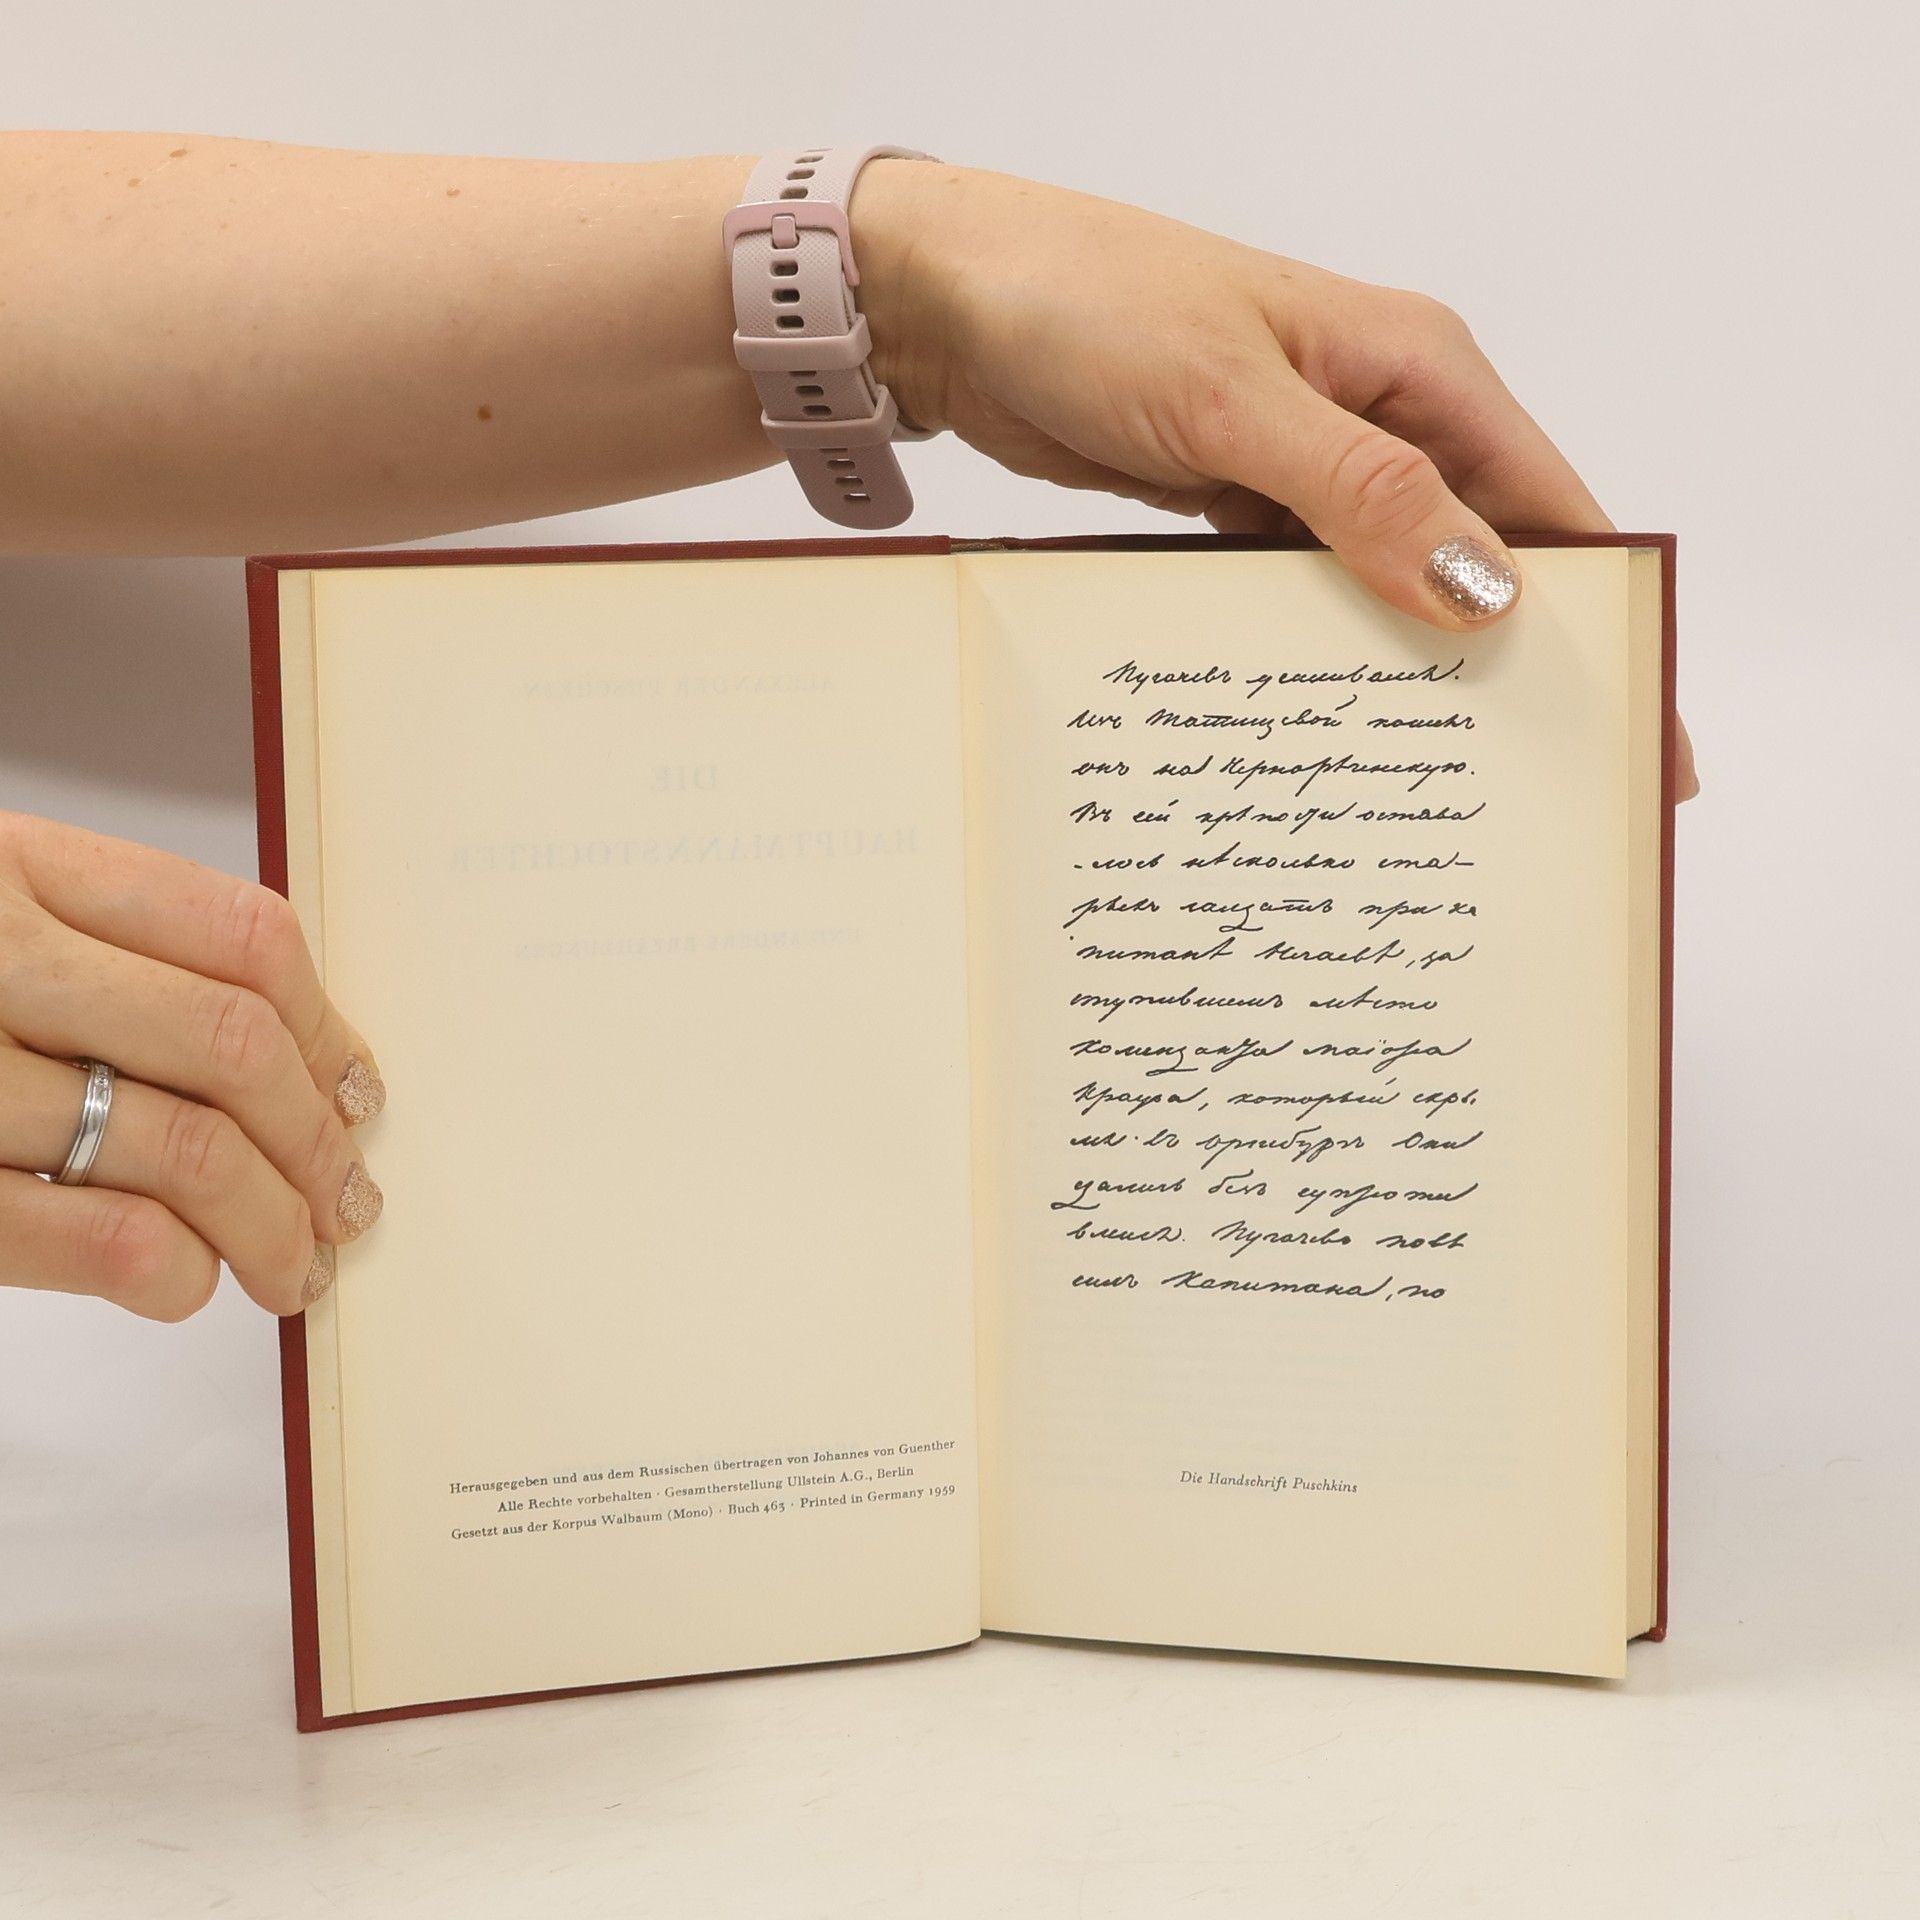 Herausgegeben und aus dem Russischen übertragen von Johannes von Guenther
Alle Rechte vorbehalten · Gesamtherstellung Ullstein A.G., Berlin
Gesetzt aus der Korpus Walbaum (Mono) · Buch 463 · Printed in Germany 1959
Пугачевъ усиливался.
Изъ Татищевой пошелъ
онъ на Чернорѣченскую.
Въ сей крѣпости остава
-лось нѣсколько ста-
рыхъ солдатъ при ка
питанѣ Нечаевѣ, за
ступившемъ мѣсто
коменданта маіора
Крауза, который скры
лся въ Оренбургъ Они
сдались безъ супроти
вленія. Пугачевъ повѣ
силъ Капитана, по
Die Handschrift Puschkins